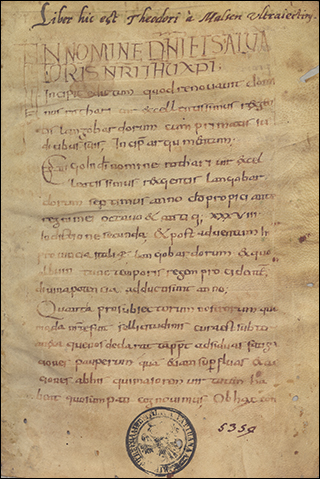 Liber hic est Theodori à Malsen Ultraiectini.
N NOMINE DNI ET SALVA
ORIS NRI IHU XPI
Incipit edictum quod renouauit dom
nus rothari uir excellentissimus rex gen
ti langobardorum cum primatis iu
dicibus suis. Incip argumentum.
Ego In di nomine rothari uir excel
lentissimus rex gentis langobar
dorum septimus anno do propici ante
regni mei octauo & q, XXXVIII
Indictione secunda & post aduentum In
prouincia italiae langobardorum
temporis regni
diuina potencia adducti sunt anno,
Quanta pro subiectorum nostrorum
sollicitudinis cura & sub
quos declarat adsiduas fatiga
ciones pauperum quam & iam superfluas &
ciones ab his qui maiorem uirtutem ha
cognouimus Ob hac con
5359